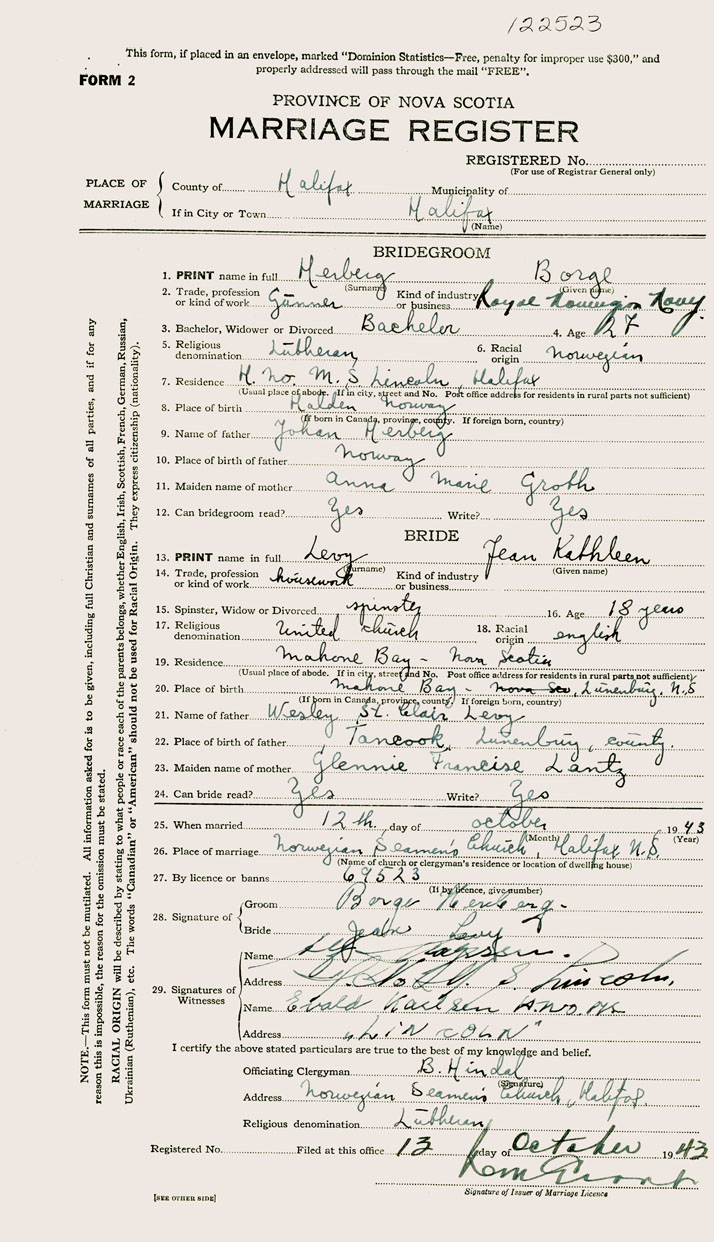 122523
This form, if placed in an envelope, marked “Dominion Statistics—Free, penalty for improper use $300,” and
properly addressed will pass through the mail “FREE”.
FORM 2
PROVINCE OF NOVA SCOTIA
MARRIAGE REGISTER
REGISTERED No.
(For use of Registrar General only)
PLACE OF MARRIAGE
County of Halifax Municipality of
If in City or Town Halifax
(Name)
BRIDEGROOM
1. PRINT name in full Herberg Borge
(Surname) (Given name)
2. Trade, profession or kind of work Gunner Kind of industry or business Royal Norwegian Navy.
3. Bachelor, Widower or Divorced Bachelor 4. Age 27
5. Religious denomination Lutheran 6. Racial origin Norwegian
7. Residence H. No. M. S Lincoln, Halifax
(Usual place of abode. If in city, street and No. Post office address for residents in rural parts not sufficient)
8. Place of birth Halden Norway
(If born in Canada, province, county. If foreign born, country)
9. Name of father Johan Herberg
10. Place of birth of father Norway
11. Maiden name of mother Anna Marie Groth
12. Can bridegroom read? Yes Write? Yes
BRIDE
13. PRINT name in full Levy Jean Kathleen
(Surname) (Given name)
14. Trade, profession or kind of work housework Kind of industry or business
15. Spinster, Widow or Divorced spinster 16. Age 18 years
17. Religious denomination United church 18. Racial origin english
19. Residence Mahone Bay - Nova Scotia
(Usual place of abode. If in city, street and No. Post office address for residents in rural parts not sufficient)
20. Place of birth Mahone Bay - Nova Sco, Lunenburg, N.S
(If born in Canada, province, county. If foreign born, country)
21. Name of father Wesley St. Clair Levy
22. Place of birth of father Tancook, Lunenburg, county.
23. Maiden name of mother Glennie Francise Lantz
24. Can bride read? Yes Write? Yes
25. When married 12th day of october 1943
(Month) (Year)
26. Place of marriage Norwegian Seamen's Church, Halifax N.S.
(Name of church or clergyman's residence or location of dwelling house)
27. By licence or banns 69523
(If by licence, give number)
28. Signature of
Groom Borge Herberg.
Bride Jean Levy
29. Signatures of Witnesses
Name
Address S. Lincoln.
Name Evald Karlsen
Address "LINCOLN"
I certify the above stated particulars are true to the best of my knowledge and belief.
Officiating Clergyman B. Hindal
(Signature)
Address Norwegian Seamen's Church, Halifax.
Religious denomination Lutheran
Registered No. Filed at this office 13 day of October 1943
Signature of Issuer of Marriage Licence
[SEE OTHER SIDE]
NOTE.—This form must not be mutilated. All information asked for is to be given, including full Christian and surnames of all parties, and if for any
reason this is impossible, the reason for the omission must be stated.
RACIAL ORIGIN will be described by stating to what people or race each of the parents belongs, whether English, Irish, Scottish, French, German, Russian,
Ukrainian (Ruthenian), etc. The words “Canadian” or “American” should not be used for Racial Origin. They express citizenship (nationality).